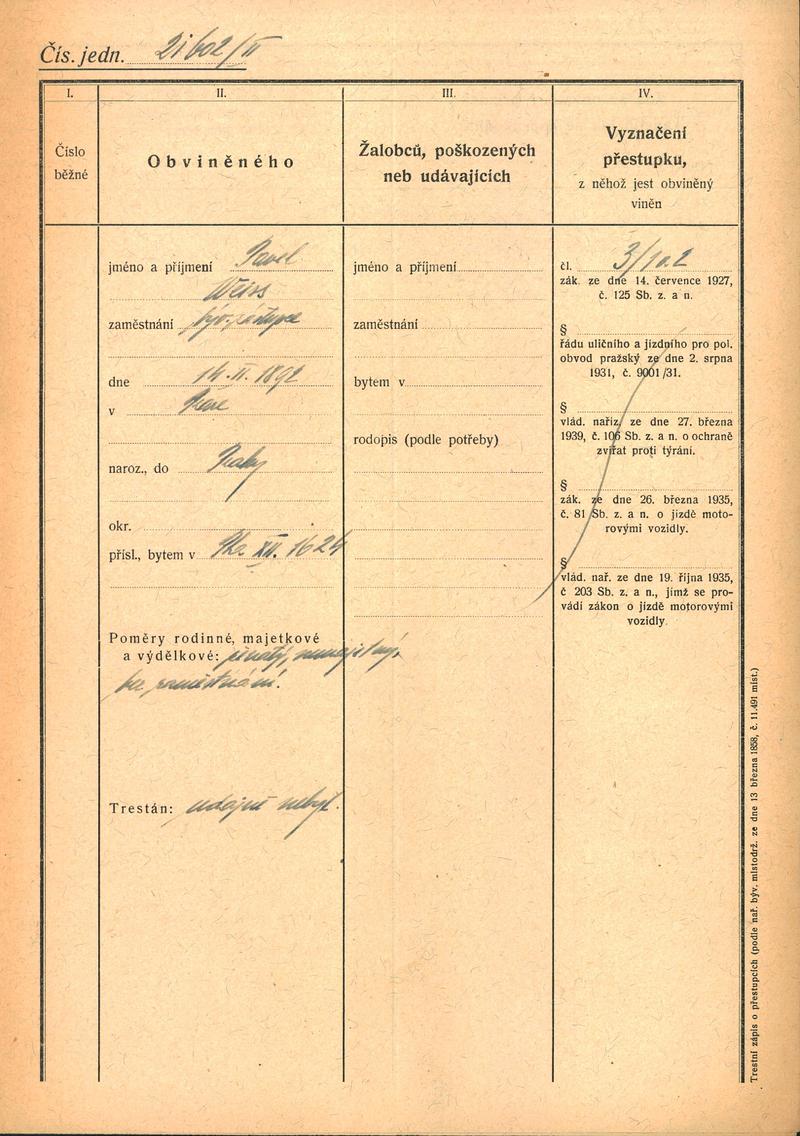 Čís. jedn. 21602/II
I.
II.
III.
IV.
Číslo
běžné
Obviněného
Žalobců, poškozených
neb udávajících
Vyznačení
přestupku,
z něhož jest obviněný
viněn
jméno a příjmení Pavel
Weiss
zaměstnání
dne 14.II.1892
v
naroz., do Prahy
okr.
přísl., bytem v XII. 1624
Poměry rodinné, majetkové
a výdělkové: ženatý, nemajetný,
bez zaměstnání.
Trestán: údajně nebyl.
jméno a příjmení
zaměstnání
bytem v
rodopis (podle potřeby)
čl. 3/10.2
zák. ze dne 14. července 1927,
č. 125 Sb. z. a n.
§
řádu uličního a jízdního pro pol.
obvod pražský ze dne 2. srpna
1931, č. 9001/31.
§
vlád. naříz. ze dne 27. března
1939, č. 106 Sb. z. a n. o ochraně
zvířat proti týrání.
§
zák. ze dne 26. března 1935,
č. 81 Sb. z. a n. o jízdě moto-
rovými vozidly.
§
vlád. nař. ze dne 19. října 1935,
č 203 Sb. z. a n., jímž se pro-
vádí zákon o jízdě motorovými
vozidly.
Trestní zápis o přestupcích (podle nař. býv. místodrž. ze dne 13 března 1858, č. 11.491 míst.)